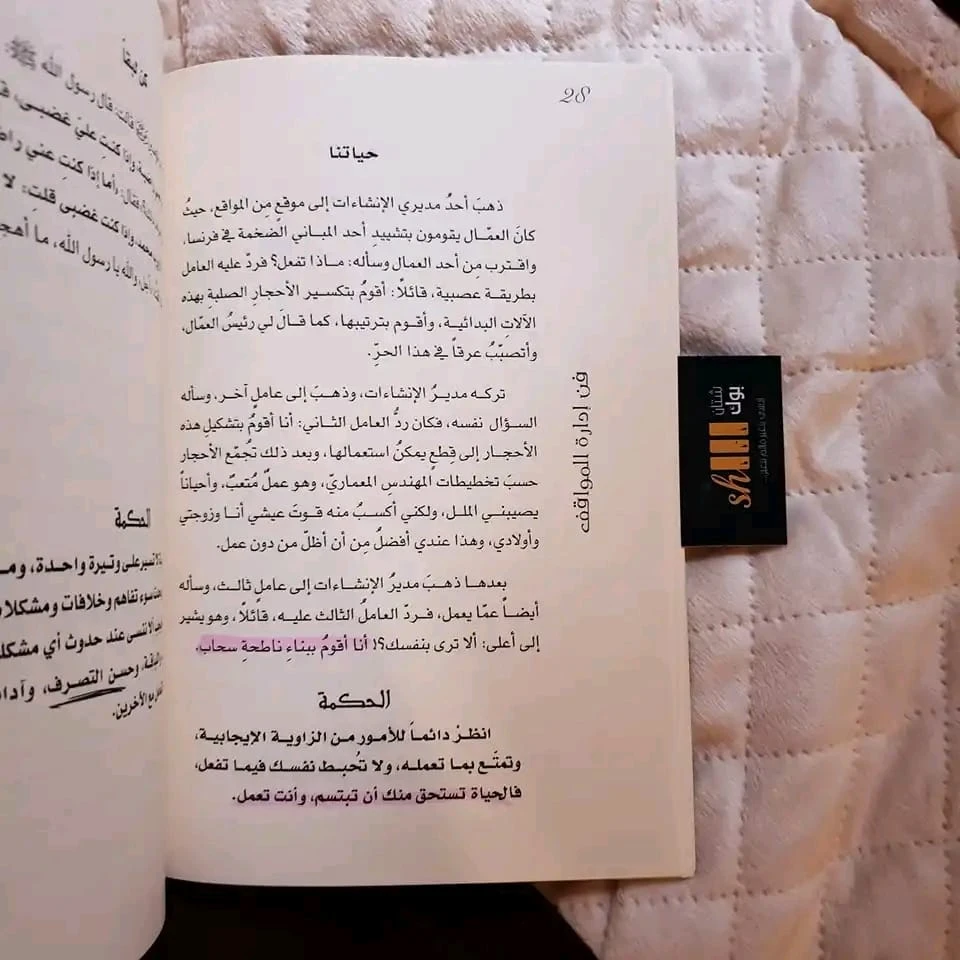 28
حياتنا
ذهبَ أحدُ مديري الإنشاءات إلى موقعٍ مِن المواقع، حيثُ
كانَ العمّال يقومون بتشييدِ أحد المباني الضخمة في فرنسا،
واقترب مِن أحد العمال وسأله: ماذا تفعل؟ فردّ عليه العامل
بطريقة عصبية، قائلًا: أقومُ بتكسير الأحجار الصلبةِ بهذه
الآلاتِ البدائية، وأقوم بترتيبها، كما قالَ لي رئيسُ العمّال،
وأتصبّبُ عرقاً في هذا الحرّ.
تركه مديرُ الإنشاءات، وذهبَ إلى عاملٍ آخر، وسأله
السؤال نفسه، فكان ردُّ العامل الثاني: أنا أقومُ بتشكيلِ هذه
الأحجار إلى قِطعٍ يمكنُ استعمالها، وبعد ذلك تُجمّع الأحجار
حسبَ تخطيطات المهندسِ المعماريّ، وهو عملٌ مُتعبٌ، وأحياناً
يصيبني الملل، ولكني أكسبُ منه قوتَ عيشي أنا وزوجتي
وأولادي، وهذا عندي أفضلُ مِن أن أظلّ من دون عمل.
بعدها ذهبَ مديرُ الإنشاءات إلى عاملٍ ثالث، وسأله
أيضاً عمّا يعمل، فردّ العاملُ الثالث عليه، قائلًا، وهو يشير
إلى أعلى: ألا ترى بنفسك؟! أنا أقومُ ببناءِ ناطحةِ سحاب.
الحكمة
انظرْ دائماً للأمور من الزاوية الإيجابية،
وتمتّع بما تعمله، ولا تُحبط نفسك فيما تفعل،
فالحياة تستحق منك أن تبتسم، وأنت تعمل.
فن إدارة المواقف
شتان
بوك
sh
قالت: قال رسول الله ﷺ
وإذا كنتِ عليّ غضبى،
فقال: أما إذا كنتِ عني
محمد، وإذا كنت غضبى قلتِ: لا
والله يا رسول الله، ما
الحكمة
تسير على وتيرة واحدة،
سوء تفاهم وخلافات
تنسى عند حدوث أي
وحسن التصرف،
مع الآخرين.